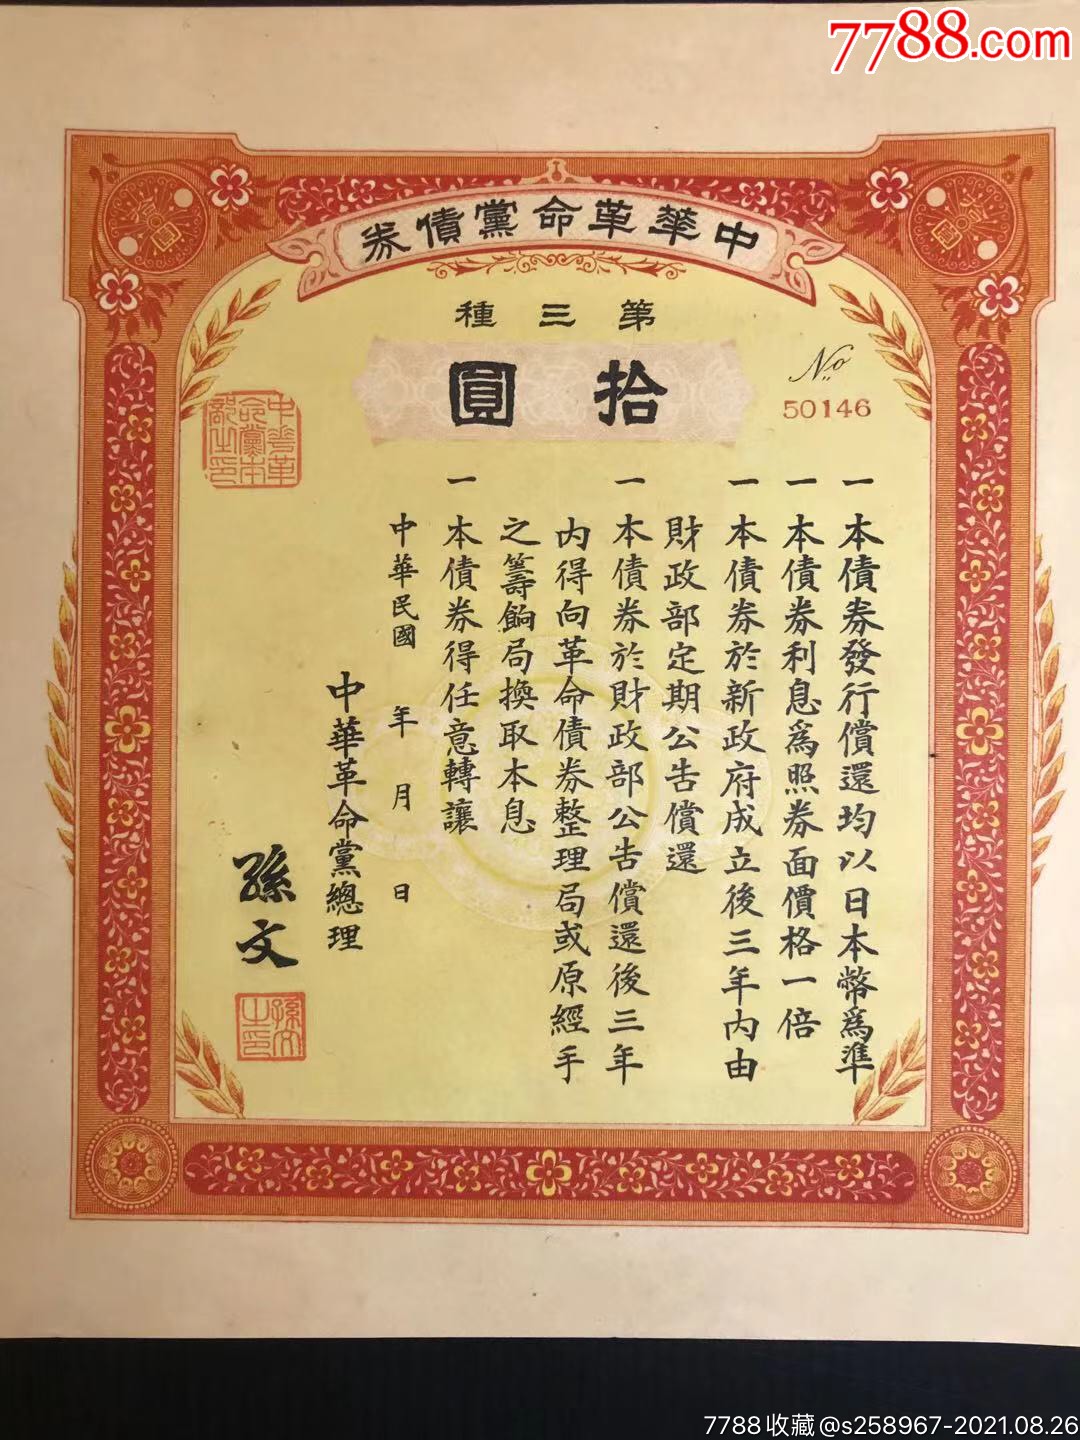 7788.com
中華革命黨債券
第三種
拾圓
No
50146
一本債券發行償還均以日本幣爲準
一本債券利息爲照券面價格一倍
一本債券於新政府成立後三年內由
財政部定期公告償還
一本債券於財政部公告償還後三年
內得向革命債券整理局或原經手
之籌餉局換取本息
一本債券得任意轉讓
中華民國 年 月 日
中華革命黨總理
孫文
中華革
命黨本
部之印
孫文
之印
7788收藏@s258967-2021.08.26